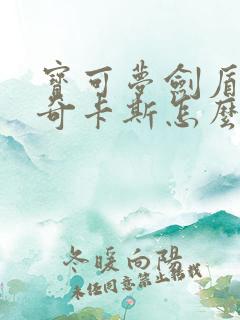 寶可夢劍盾
奇卡斯怎麼
冬暖向陽
未经同意禁止转载